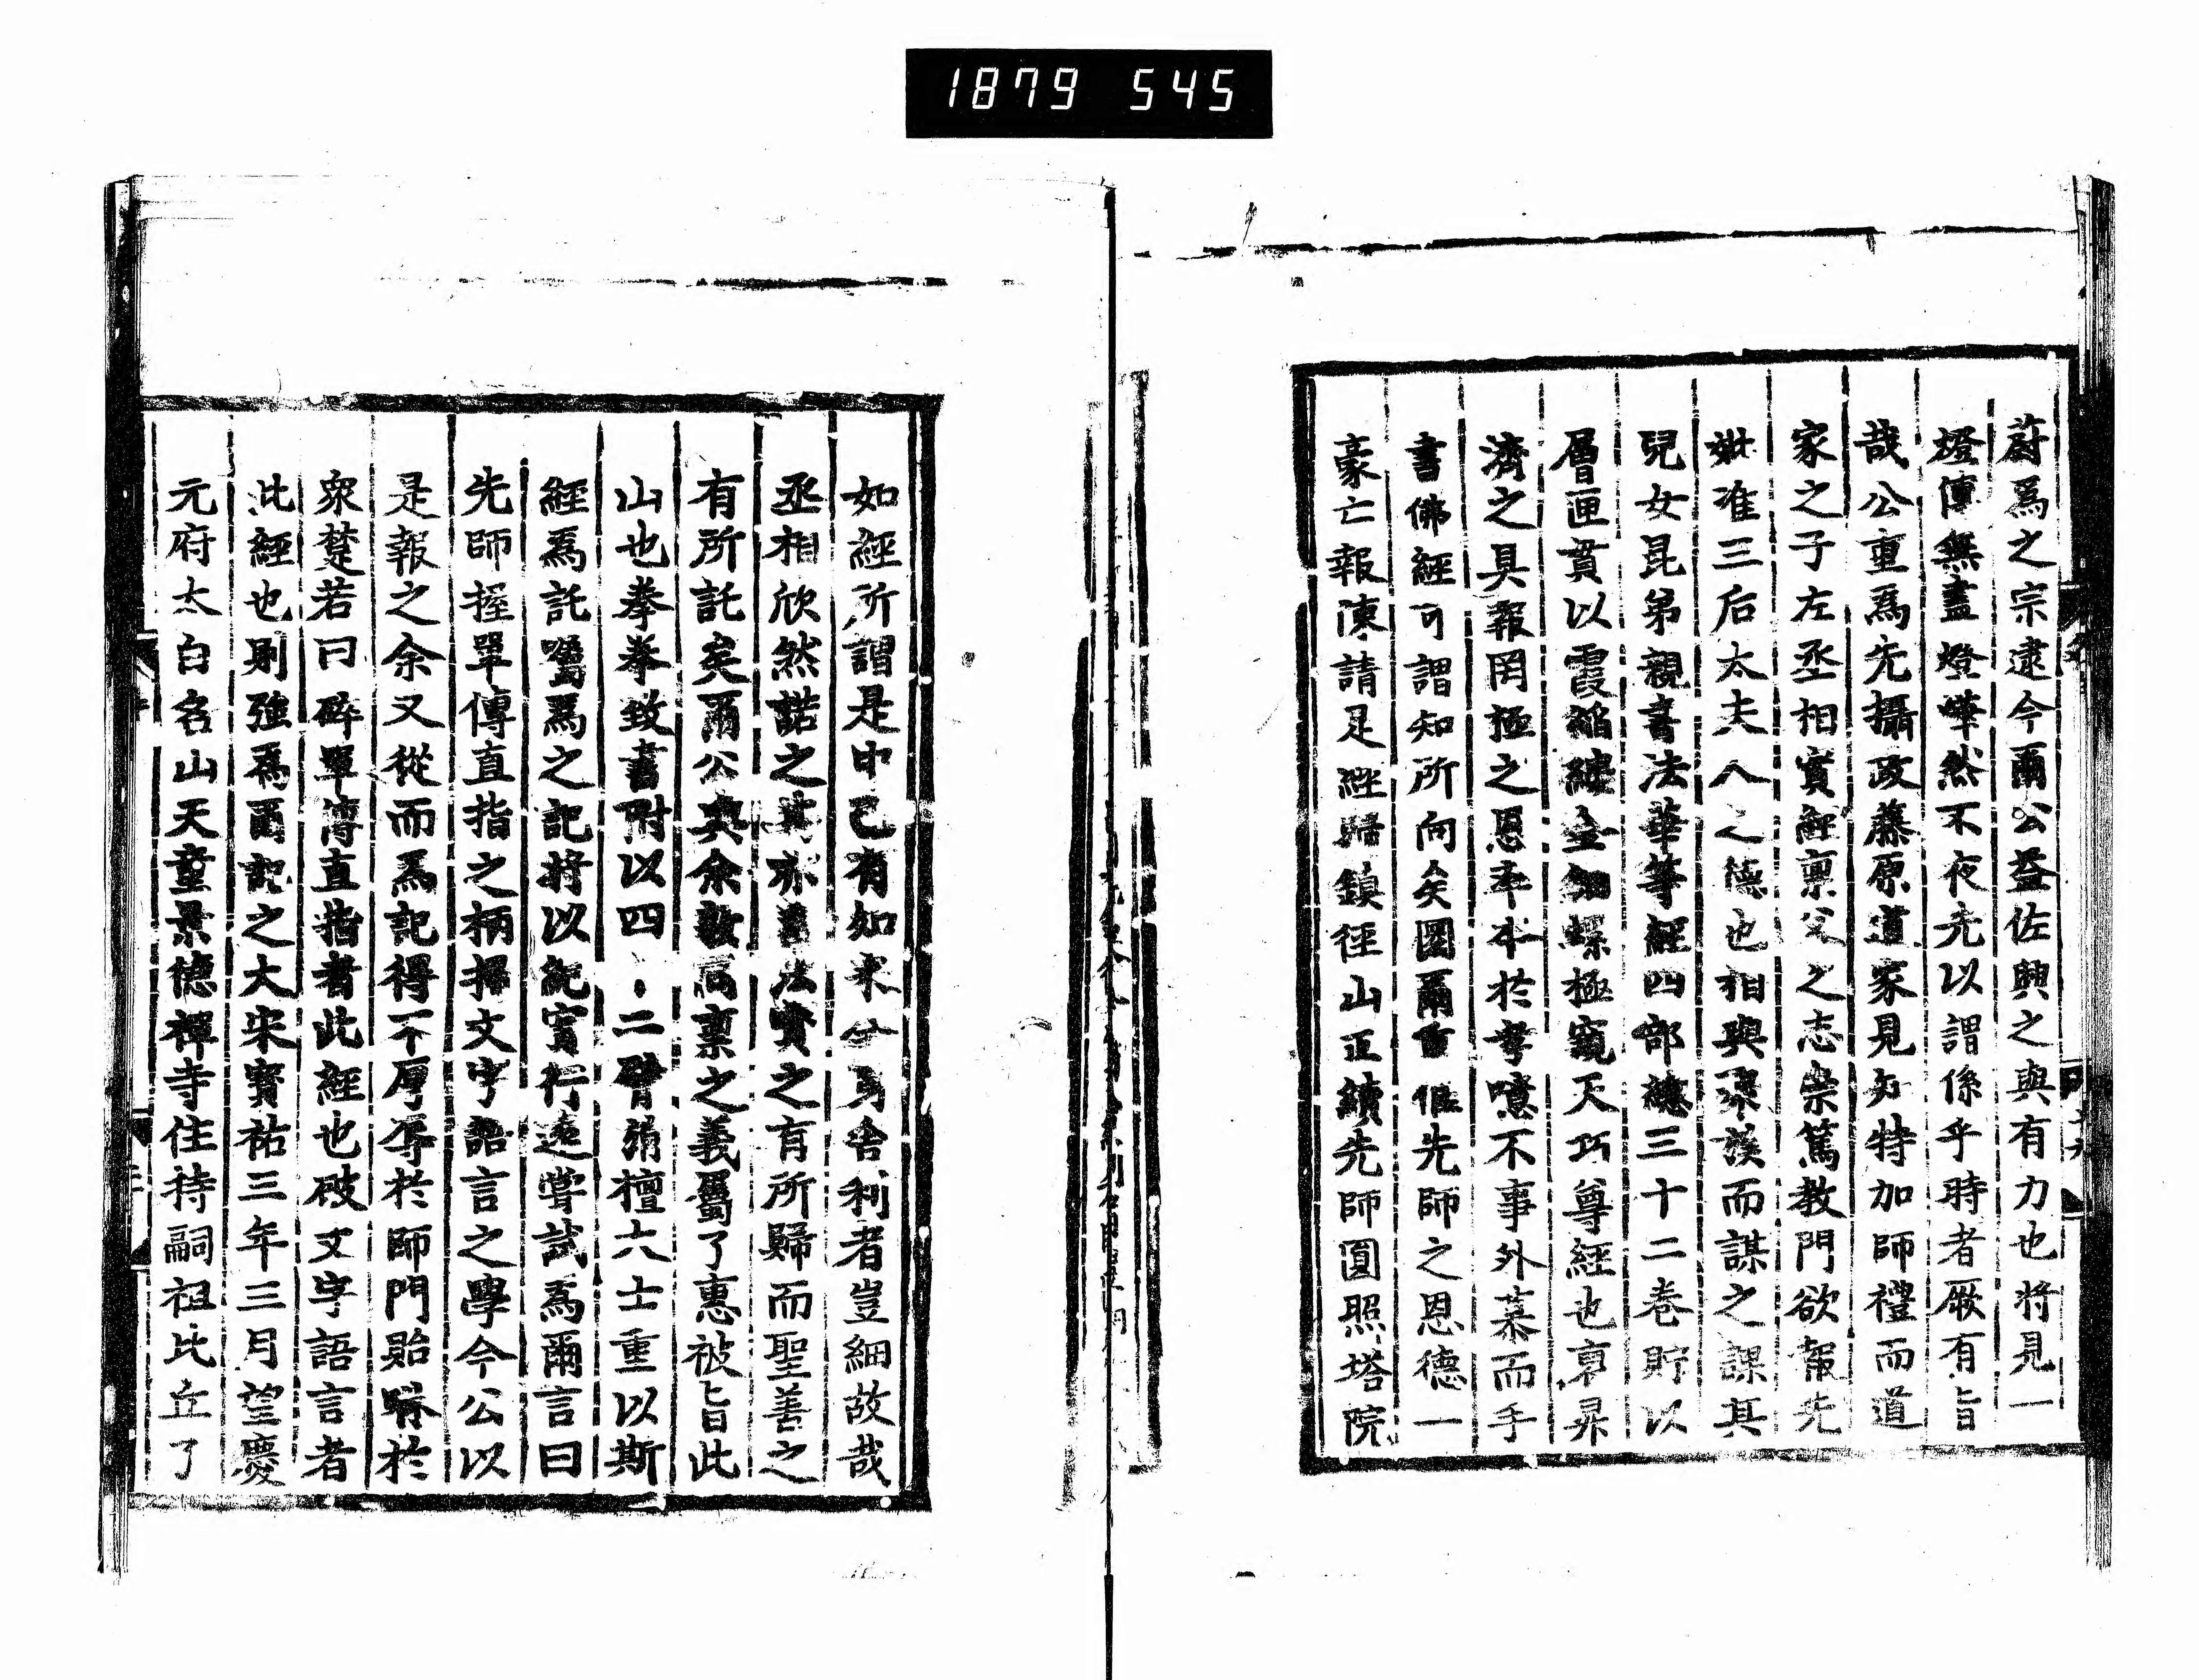 1879 545
蔚爲之宗逮今爾公益佐興之與有力也將見一
燈傳無盡燈曄然不夜先以謂係乎時者厥有旨
哉公重爲先攝政藤原道家見知特加師禮而道
家之子左丞相實經稟父之志崇篤教門欲報先
妣准三后太夫人之德也相與聚族而謀之課其
兒女昆弟親書法華等經四部總三十二卷貯以
層匣貫以霞縚縷金鈿螺極窺天巧尊經也享昇
濟之具報罔極之恩率本於孝噫不事外慕而手
書佛經可謂知所向矣圓爾重惟先師之恩德一
豪亡報陳請是經歸鎮徑山正續先師圓照塔院
如經所謂是中已有如來全身舍利者豈細故哉
丞相欣然諾之其亦善法寶之有所歸而聖善之
有所託矣爾公與余敦高稟之義屬了惠被旨此
山也拳拳致書附以四二臂觷檀六士重以斯
經爲託囑爲之記將以紀實行遠嘗試爲爾言曰
先師握單傳直指之柄掃文字語言之學今公以
是報之余又從而爲記得不厚辱於師門貽嗤於
衆楚若曰碎單傳直指者此經也破文字語言者
此經也則強爲爾記之大宋寶祐三年三月望慶
元府太白名山天童景德禪寺住持嗣祖比丘了